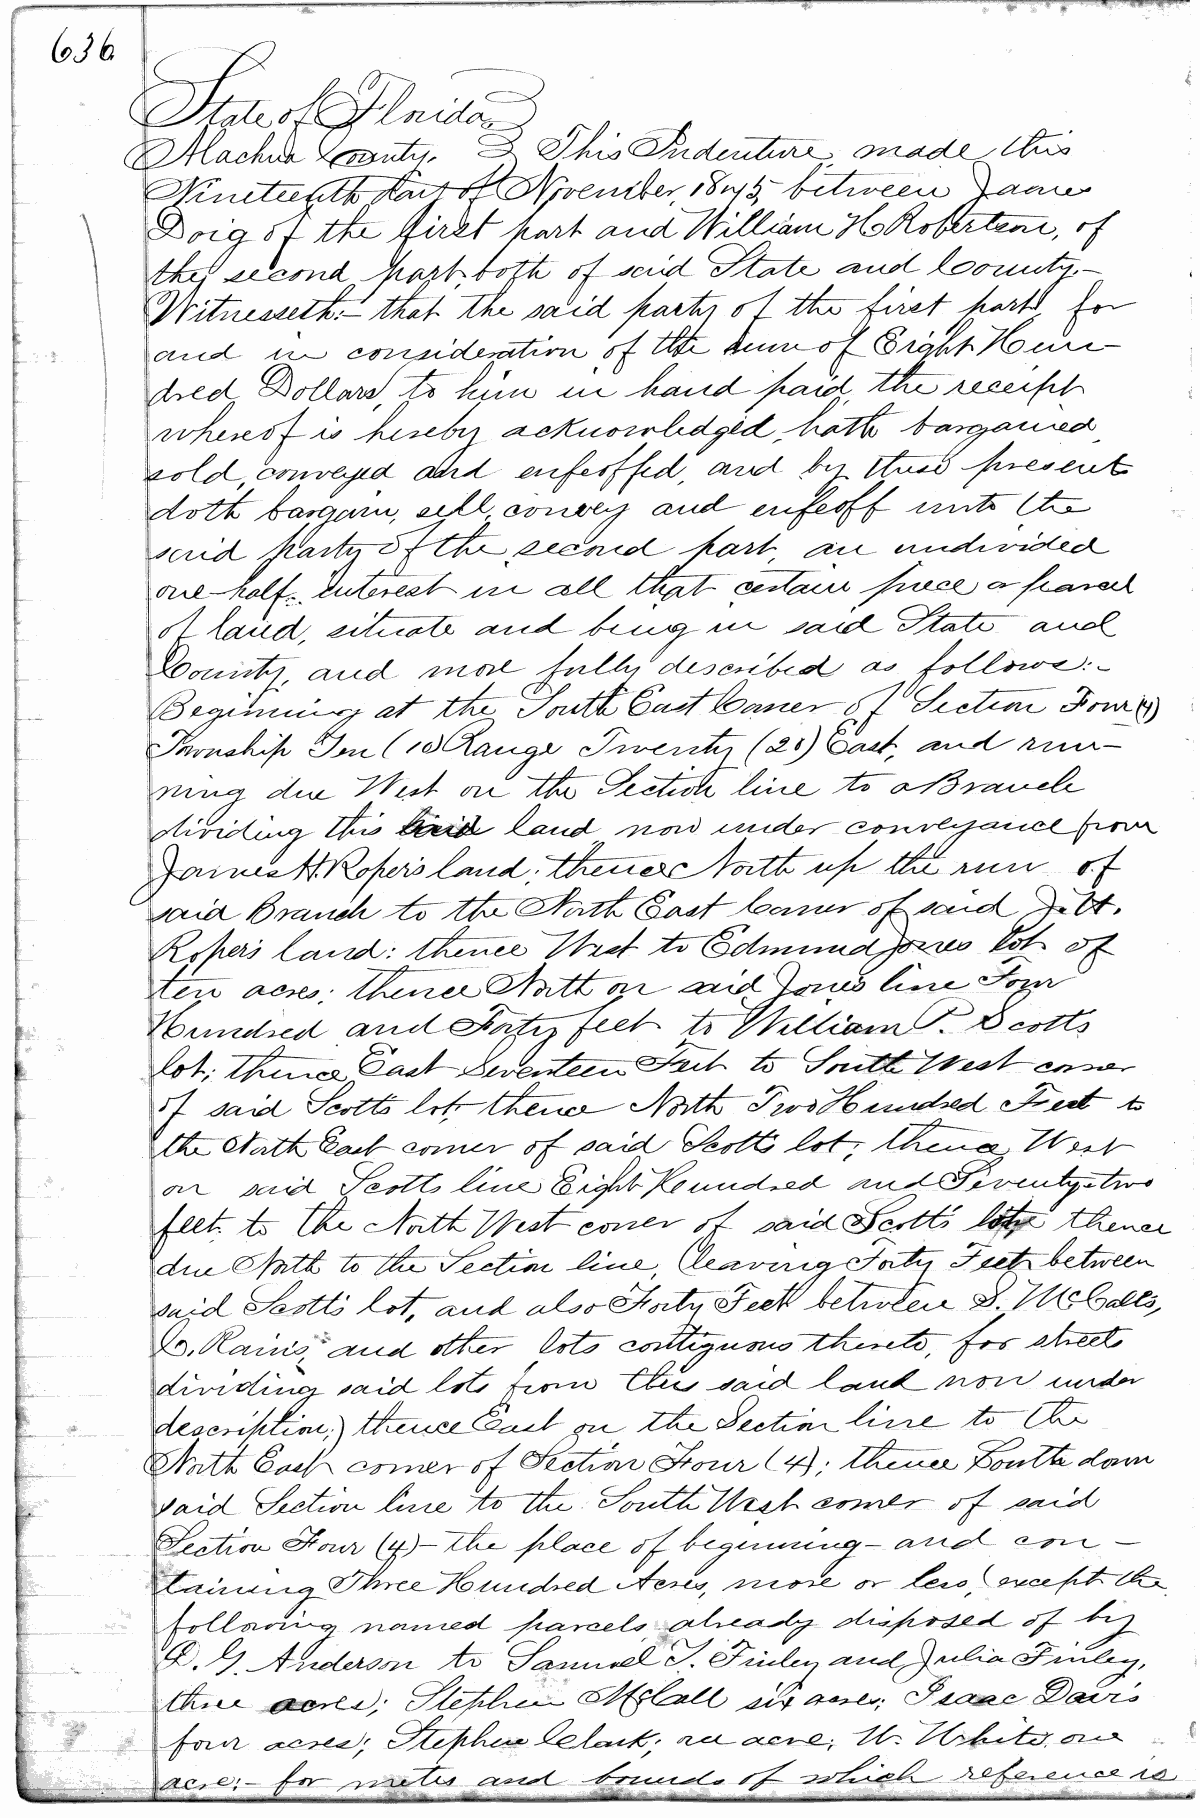 636
State of Florida
Alachua County. } This Indenture, made this
Nineteenth day of November, 1875, between James
Doig of the first part and William H Robertson, of
the second part, both of said State and County.-
Witnesseth:- that the said party of the first part, for
and in consideration of the sum of Eight Hun-
dred Dollars, to him in hand paid, the receipt
whereof is hereby acknowledged, hath bargained,
sold, conveyed and enfeoffed, and by these presents
doth bargain, sell, convey and enfeoff unto the
said party of the second part, an undivided
one-half interest in all that certain piece or parcel
of land, situate and being in said State and
County, and more fully described as follows:-
Beginning at the South East Corner of Section Four (4)
Township Ten (10) Range Twenty (20) East, and run-
ning due West on the Section line to a Branch
dividing this land now under conveyance from
James H. Roper's land; thence North up the run of
said Branch to the North East Corner of said J. H.
Roper's land: thence West to Edmund Jones lot of
ten acres; thence North on said Jones line Four
Hundred and Forty feet to William P. Scott's
lot; thence East Seventeen Feet to South West corner
of said Scotts lot; thence North Two Hundred Feet to
the North East corner of said Scott's lot; thence West
on said Scotts line Eight Hundred and Seventy-two
feet to the North West corner of said Scott's lot; thence
due North to the Section line, (leaving Forty Feet between
said Scott's lot, and also Forty Feet between S. McCall's,
C. Rain's, and other lots contiguous thereto, for streets
dividing said lots from this said land now under
description;) thence East on the Section line to the
North East corner of Section Four (4); thence South down
said Section line to the South West corner of said
Section Four (4) - the place of beginning - and con-
taining Three Hundred Acres, more or less, (except the
following named parcels, already disposed of by
D. G. Anderson to Samuel T. Finley and Julia Finley,
three acres; Stephen McCall six acres; Isaac Davis
four acres; Stephen Clark; one acre; W. White, one
acre;- for metes and bounds of which reference is